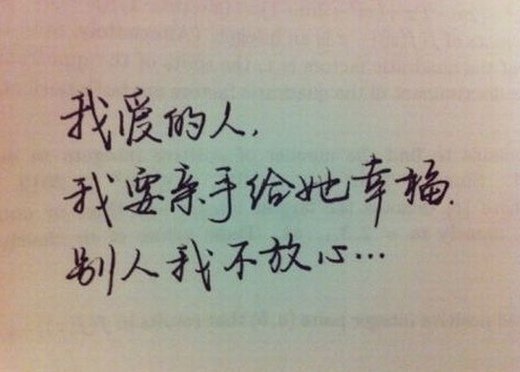 我爱的人，
我要亲手给她幸福.
别人我不放心...